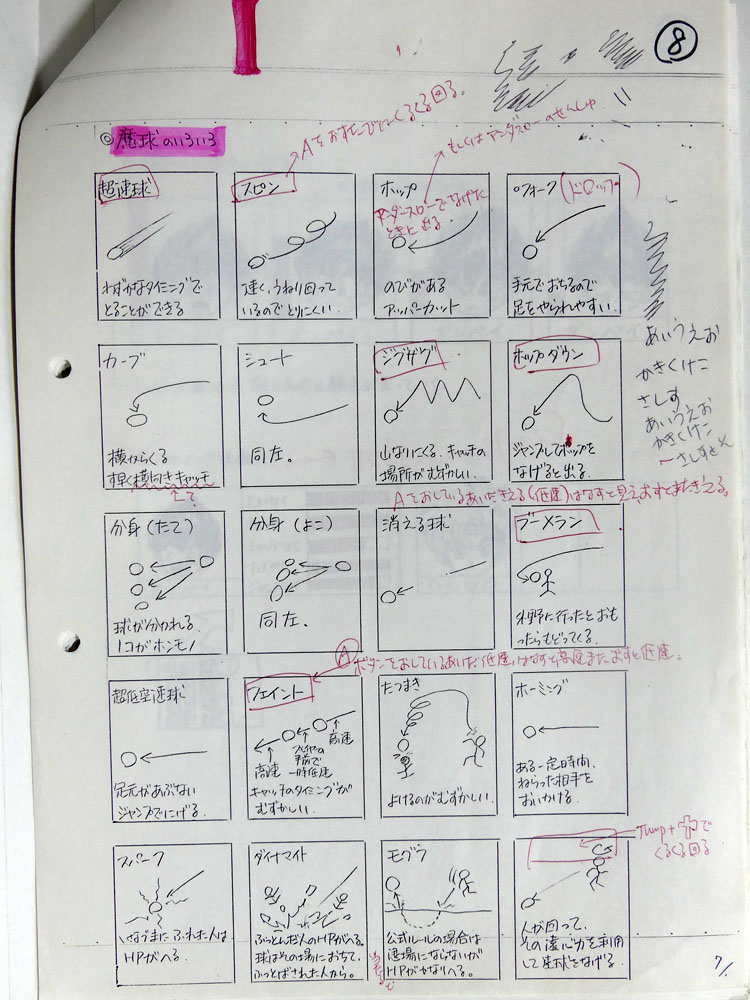 ⑧
◎魔球のいろいろ
Aをおすたびにくるくる回る。
もしくはアンダースローのせんしゅ
超速球
わずかなタイミングで
とることができる
スピン
速く、うねり回って
いるのでとりにくい
ホップ
アンダースローでなげたときに出る。
のびがある
アッパーカット
フォーク(ドロップ)
手元でおちるので
足をやられやすい。
あいうえお
かきくけこ
さしす
あいうえお
かきくけこ
カーブ
横からくる
すばやく横向きキャッチ
シュート
同左。
ジグザグ
山なりにくる。キャッチの
場所がむずかしい。
ホップダウン
ジャンプしてホップを
なげると出る。
Aをおしているあいだきえる(低速)はなすと見え、おすとまたきえる。
分身(たて)
球が分かれる
1コがホンモノ
分身(よこ)
同左。
消える球
ブーメラン
外野に行ったとおも
ったらもどってくる。
Aボタンをおしているあいだ低速、はなすと高速またおすと低速。
超低空速球
足元があぶない
ジャンプでにげる。
フェイント
高速
プレイヤーの
手前で
一時低速
高速
キャッチのタイミングが
むずかしい。
たつまき
よけるのがむずかしい
ホーミング
ある一定時間、
ねらった相手を
おいかける。
Jump+十で
くるくる回る
スパーク
いなづまにふれた人は
HPがへる。
ダイナマイト
ふっとんだ人のHPがへる。
球はその場におちて、
ふっとばされた人から。
モグラ
公式ルールの場合は
退場にならないが
HPがかなりへる。
人が回って、
その遠心力を利用
して魔球をなげる。